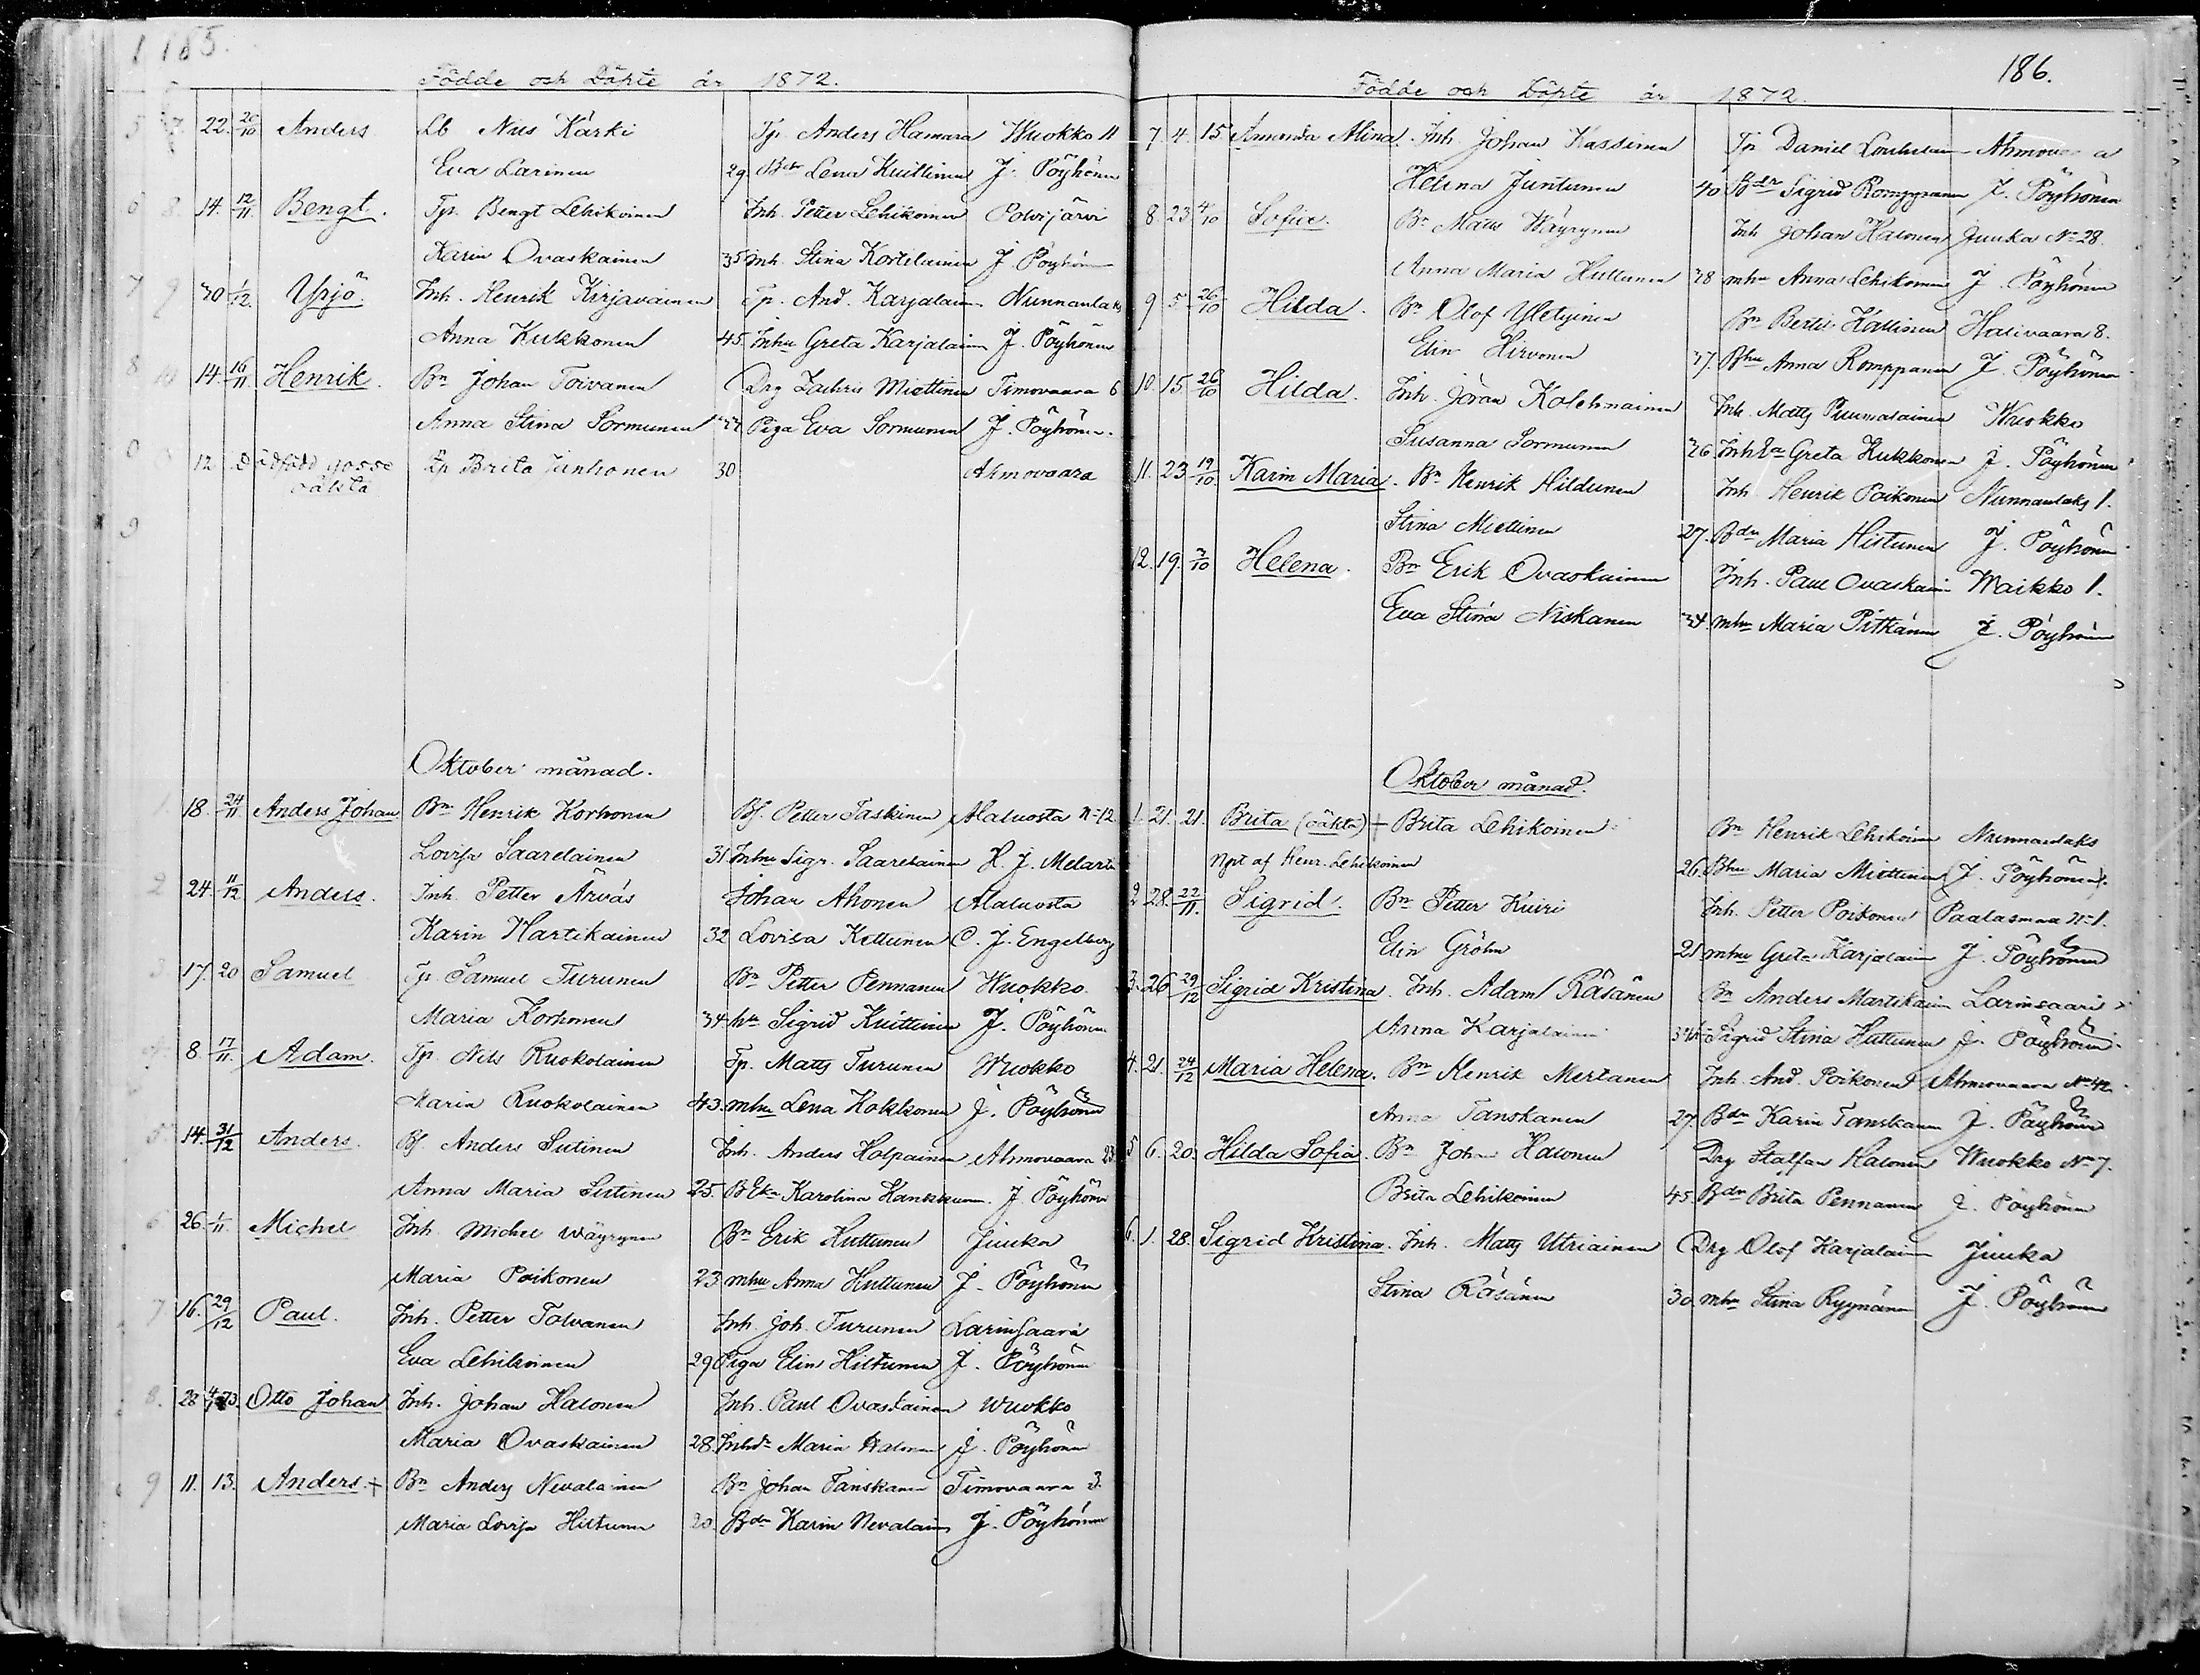 185.
Födde och Döpte år 1872.
22. 20/10 Anders Lb Nils Kärki Tp. Anders Hamara Wuokko 11
Eva Larinen 29 Lena Kuittinen J. Pöyhönen
14. 12/11. Bengt. Tp. Bengt Lehikoinen Inh. Petter Lehikoinen Polvijärvi
Karin Ovaskainen 35 Inh. Stina Kortelainen J. Pöyhönen
30 1/12. Yrjö. Inh. Henrik Kirjavainen Tp. And. Karjalainen Nunnanlaks
Anna Kukkonen 45. Inhu Greta Karjalainen J. Pöyhönen
14. 16/11. Henrik. Bn Johan Toivanen Drg Zachris Miettinen Timovaara 6
Anna Stina Sormunen Piga Eva Sormunen J. Pöyhönen.
12 Dödfödd gosse Tp Brita Junhonen 30 Ahmovaara
oäkta
Oktober månad.
18. 24/11. Anders Johan Bn Henrik Korhonen Bf. Petter Taskinen Alaluosta No 12
Lovisa Saarelainen 31. Inhu Sigr. Saarelainen H. J. Melart
2 24. 11/12 Anders. Inh. Petter Ärväs Johan Ahonen Alaluosta
Karin Hartikainen 32 Lovisa Kettunen C. J. Engelberg
3 17. 20 Samuel Tp. Samuel Turunen Bn Petter Pennanen Wuokko
Maria Korhonen 34 Sigrid Kuittinen J. Pöyhönen
8. 17/11. Adam. Tp. Nils Ruokolainen Tp. Matts Turunen Wuokko
Maria Ruokolainen 43. mhu Lena Kokkonen J. Pöyhönen
5 14. 31/12 Anders. Bf. Anders Sutinen Inh. Anders Holpainen Ahmovaara 23
Anna Maria Sutinen 25. Karolina J. Pöyhönen
6 26. 1/11. Michel Inh. Michel Wäyrynen Bn Erik Huttunen Juuka
Maria Poikonen 23 mhu Anna Huttunen J. Pöyhönen
7 16. 29/12 Paul. Inh. Petter Tolvanen Inh. Joh. Turunen Larinsaari
Eva Lehikoinen 29 Piga Elin Hiltunen J. Pöyhönen
8. 28 Otto Johan Inh. Johan Halonen Inh. Paul Ovaskainen Wuokko
Maria Ovaskainen 28. Maria Halonen J. Pöyhönen
9 11. 13. Anders + Bn Anders Nevalainen Bn Johan Tanskanen Timovaara 3.
Maria Lovisa Hiltunen 20 Bdr Karin Nevalainen J. Pöyhönen
186.
Födde och Döpte år 1872.
7 4. 15 Amanda Alina. Inh. Johan Kassinen Tp. Daniel Ahmovaara
Helena Juntunen 40 Sigrid Romppanen J. Pöyhönen
8. 23 4/10 Sofia. Bn Matts Wäyrynen Inh Johan Halonen Juuka No 28.
Anna Maria Huttunen 38 mhu Anna Lehikoinen J. Pöyhönen
9 5. 26/10 Hilda. Bn Olof Yletyinen Bn Bertil Kallionen Halivaara 8.
Elin Hirvonen 37. Bhu Anna Romppanen J. Pöyhönen
10. 15. 26/10 Hilda. Inh. Jöran Kolehmainen Inh. Matts Puumalainen Wuokko
Susanna Sormunen 26. Greta Kukkonen J. Pöyhönen
11. 23. 19/10 Karin Maria. Bn Henrik Hildunen Inh. Henrik Poikonen Nunnanlaks 1.
Stina Miettinen 27. Bdr Maria Hiltunen J. Pöyhönen
12. 19. 3/10 Helena. Bn Erik Ovaskainen Inh. Paul Ovaskainen Waikko 1.
Eva Stina Niskanen 34. mhu Maria Pitkänen J. Pöyhönen
Oktober månad.
1. 21. 21. Brita (oäkta) + Brita Lehikoinen Bn Henrik Lehikoinen Nunnanlaks
af Henr. Lehikoinen 26. Bhu Maria Miettinen J. Pöyhönen.
2 28. 22/11. Sigrid. Bn Petter Kuiri Inh. Petter Poikonen Paalasmaa No 1.
Elin Gröhn 21 mhu Greta Karjalainen J. Pöyhönen
3. 26 29/12 Sigrid Kristina. Inh. Adam Räsänen Bn Anders Martikainen Larinsaari
Anna Karjalainen 34 Sigrid Stina Huttunen J. Pöyhönen
4. 21. 24/12 Maria Helena. Bn Henrik Mertanen Inh. And. Poikonen Ahmovaara No 42
Anna Tanskanen 27. Bdr Karin Tanskanen J. Pöyhönen
5 6. 20. Hilda Sofia. Bn Johan Halonen Drg Staffan Halonen Wuokko No 7.
Brita Lehikoinen 45. Bdr Brita Pennanen J. Pöyhönen
6. 1. 28. Sigrid Kristina. Inh. Matts Utriainen Drg Olof Karjalainen Juuka
Stina Räsänen 30 mhu Stina Ryynänen J. Pöyhönen